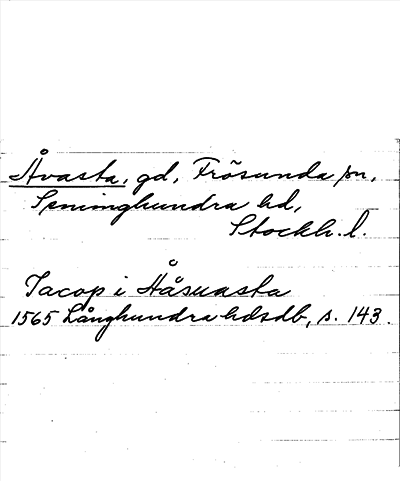 Åvasta, gd, Frösunda sn,
Seminghundra hd,
Stockh. l.
Jacop i Håsuasta
1565 Långhundra hdsdb, s. 143.